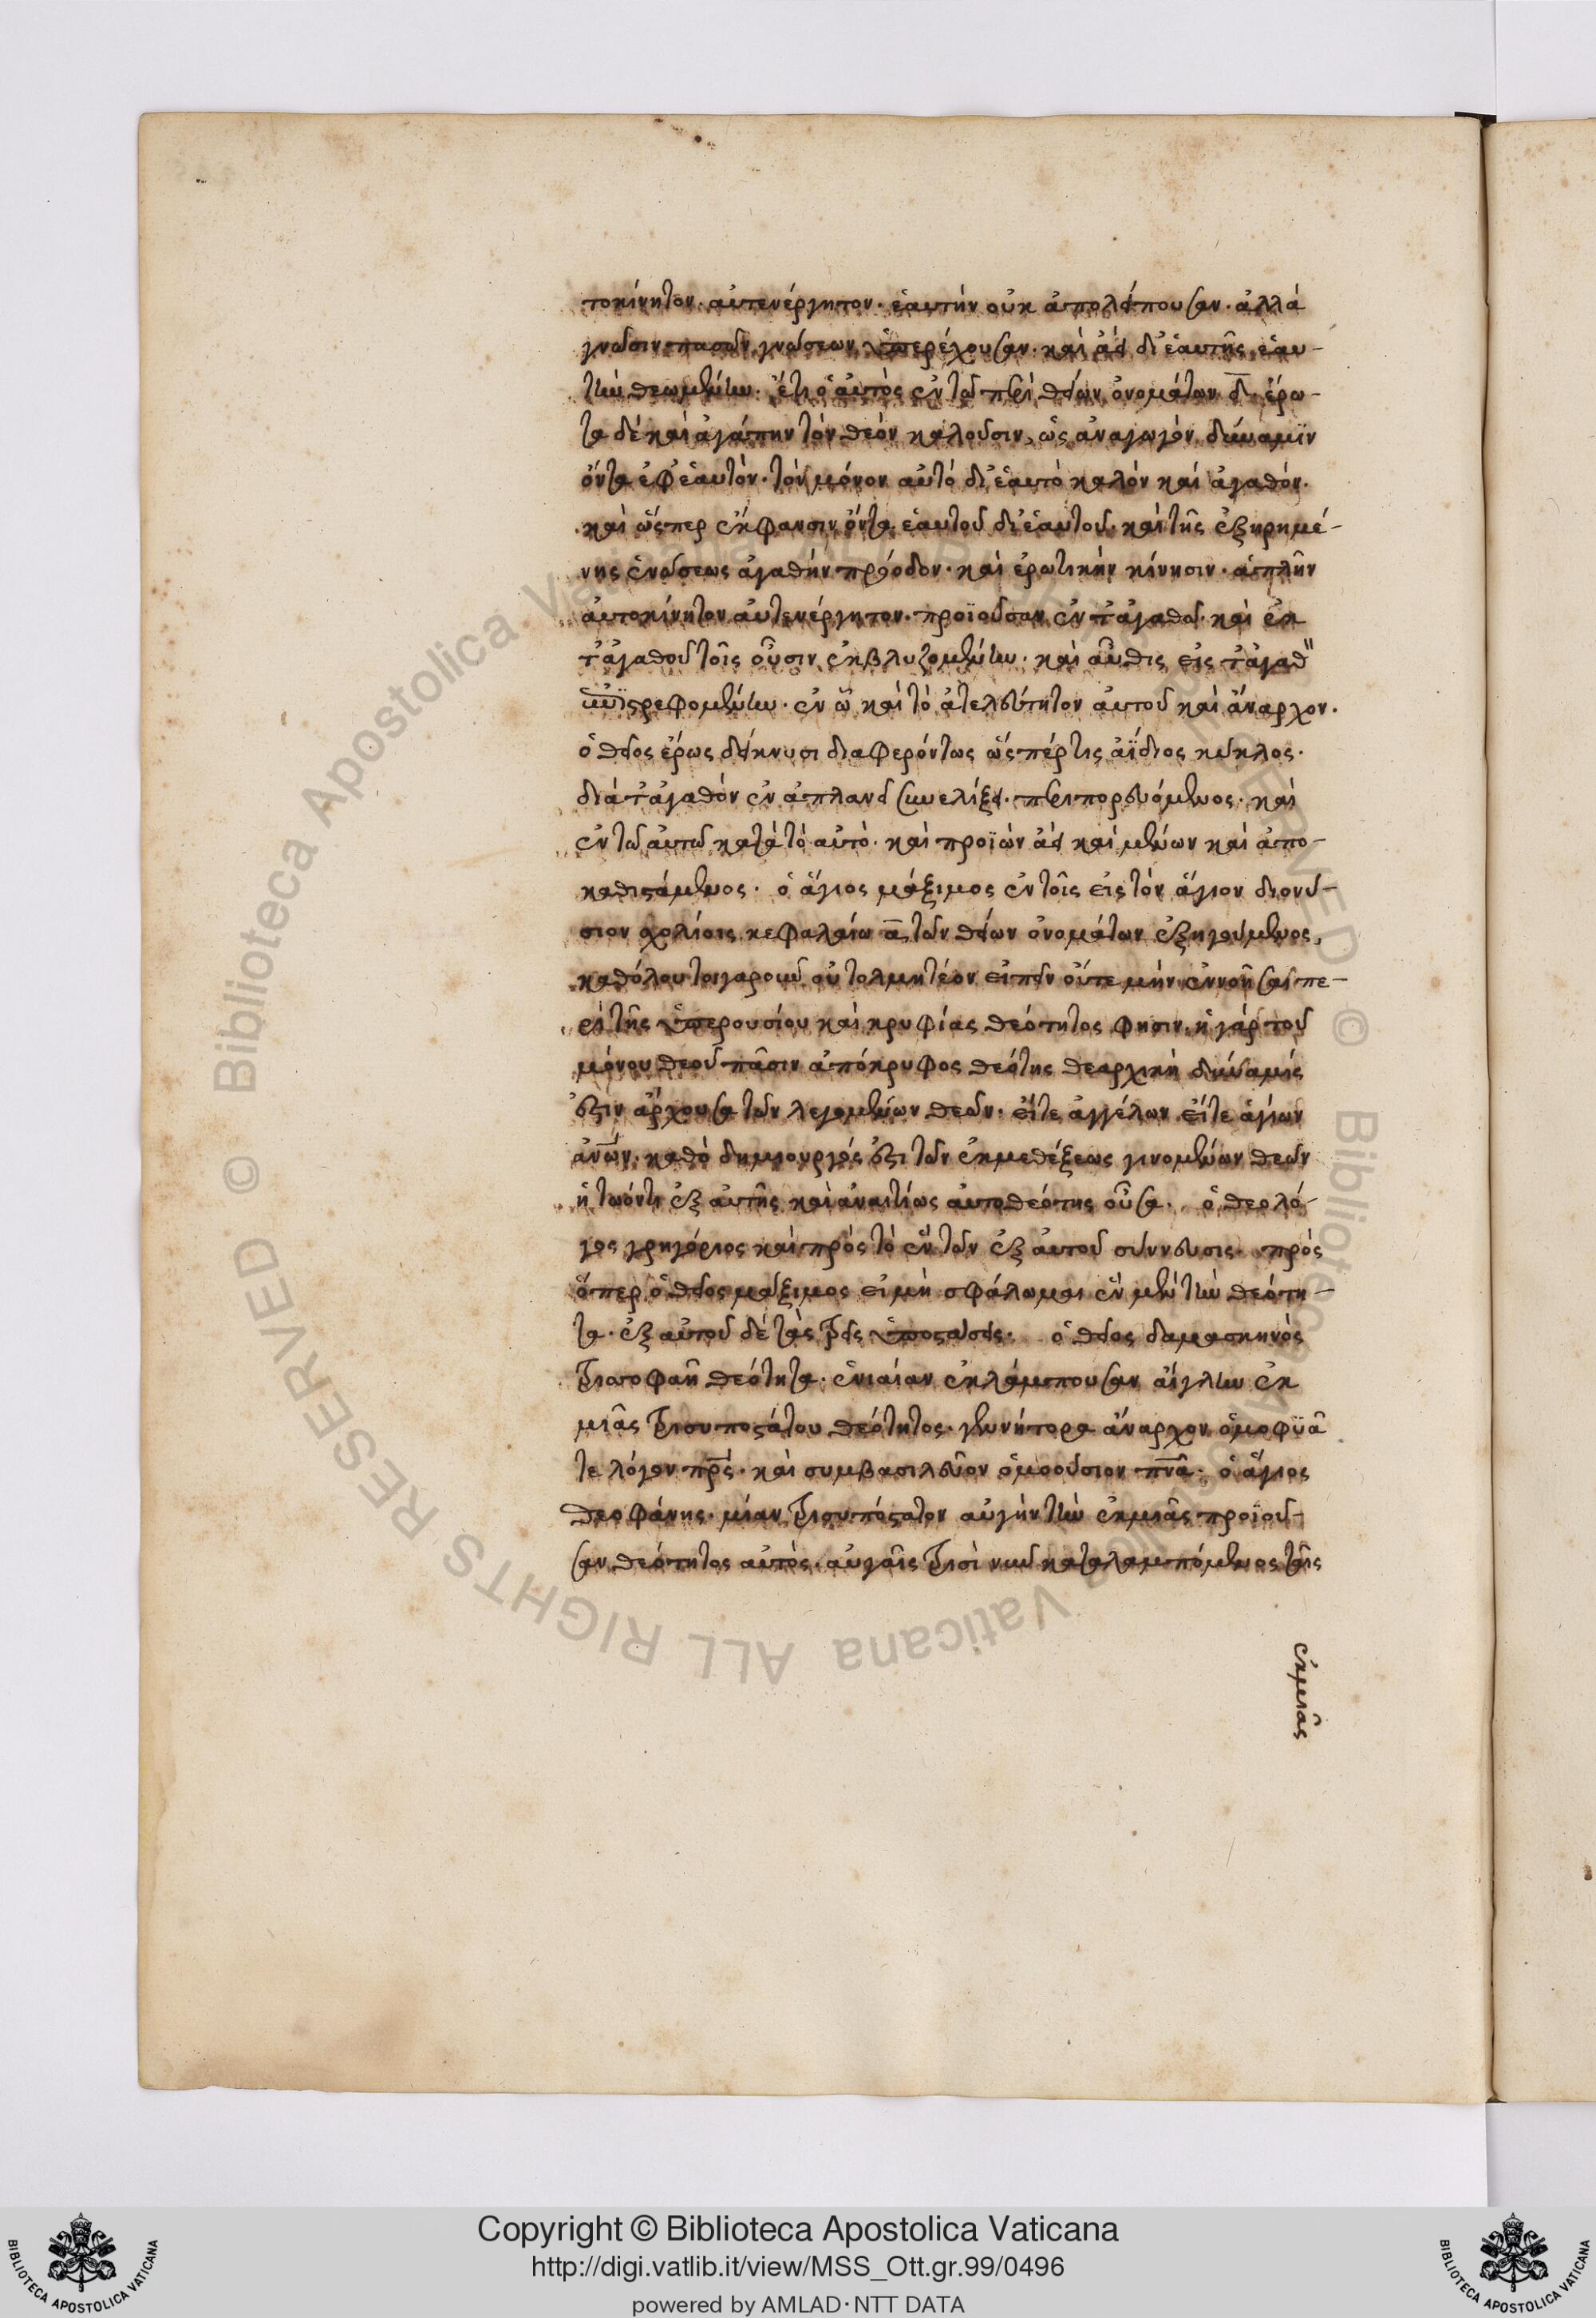 τοκίνητον. αὐτενέργητον. ἑαυτὴν οὐκ ἀπολείπουσαν. ἀλλὰ
γνῶσιν πασῶν γνώσεων ὑπερέχουσαν. καὶ ἀεὶ δι' ἑαυτῆς ἑαυ-
τὴν θεωμένην. ἔτι ὁ αὐτὸς ἐν τῶ περὶ θείων ὀνομάτων δ̅ ἔρω-
τα δὲ καὶ ἀγάπην τὸν θεὸν καλοῦσιν, ὡς ἀναγωγὸν δύναμϊν
ὄντα ἐφ' ἑαυτὸν. τὸν μόνον αὐτὸ δι' ἑαυτὸ καλὸν καὶ ἀγαθόν.
καὶ ὥσπερ ἔκφανσιν ὄντα ἑαυτοῦ δι' ἑαυτοῦ. καὶ τῆς ἐξηρημέ-
νης ἑνώσεως ἀγαθὴν πρόοδον. καὶ ἐρωτικὴν κίνησιν. ἁπλῆν
αὐτοκίνητον αὐτενέργητον. προϊοῦσαν ἐν τἀγαθῶ. καὶ ἐκ
τἀγαθοῦ τοῖς οὖσιν ἐκβλυζομένην. καὶ αὖθις εἰς τἀγαθ"
ἐπϊστρεφομένην. ἐν ὧ καὶ τὸ ἀτελεύτητον αὐτοῦ καὶ ἄναρχον.
ὁ θεῖος ἔρως δείκνυσι διαφερόντως ὥσπέρ τις ἀΐδιος κύκλος.
διὰ τἀγαθὸν ἐν ἀπλανεῖ συνελίξει. περιπορευόμενος. καὶ
ἐν τῶ αὐτῶ κατὰ τὸ αὐτὸ. καὶ προϊὼν ἀεὶ καὶ μένων καὶ ἀπο-
καθιστάμενος. ὁ ἅγιος μάξιμος ἐν τοῖς εἰς τὸν ἅγιον διονύ-
σιον σχολίοις κεφαλαίω α̅ τῶν θείων ὀνομάτων ἐξηγούμενος,
καθόλου τοιγαροῦν οὐ τολμητέον εἰπεῖν οὔτε μὴν ἐννοῆσαι πε-
ρὶ τῆς ὑπερουσίου καὶ κρυφίας θεότητος φησιν. ἡ γὰρ τοῦ
μόνου θεοῦ πᾶσιν ἀπόκρυφος θεότης θεαρχικὴ δύναμίς
ἐστιν ἄρχουσα τῶν λεγομένων θεῶν. εἴτε ἀγγέλων εἴτε ἁγίων
ἀν̅ων. καθὸ δημιουργός ἐστι τῶν ἐκ μεθέξεως γινομένων θεῶν
ἡ τωόντι ἐξ αὐτῆς καὶ ἀναιτίως αὐτοθεότης οὖσα. ὁ θεολό-
γος γρηγόριος καὶ πρὸς τὸ ἓν τῶν ἐξ αὐτοῦ σύννευσις. πρὸς
ὅπερ ὁ θεῖος μάξιμος εἰ μὴ σφάλωμαι ἓν μὲν τὴν θεότη-
τα. ἐξ αὐτοῦ δὲ τὰς τρεῖς ὑποστάσεις. ὁ θεῖος δαμασκηνὸς
τριττοφαῆ θεότητα. ἑνιαίαν ἐκλάμπουσαν αἴγλην ἐκ
μιᾶς τρισυποστάτου θεότητος. γεννήτορα ἄναρχον ὁμοφϋᾶ
τε λόγον πρ̅ς. καὶ συμβασιλεῦον ὁμοούσιον πν̅α. ὁ ἅγιος
θεοφάνης. μίαν τρισυπόστατον αὐγὴν τὴν ἐκ μιᾶς προϊοῦ-
σαν θεότητος αὐτὸς. αὐγαῖς τρισὶ νῦν καταλαμπόμενος ταῖς
ἐκ μιᾶς
Copyright © Biblioteca Apostolica Vaticana
http://digi.vatlib.it/view/MSS_Ott.gr.99/0496
powered by AMLAD·NTT DATA
BIBLIOTECA APOSTOLICA VATICANA
BIBLIOTECA APOSTOLICA VATICANA
© Biblioteca Apostolica Vaticana ALL RIGHTS RESERVED
© Biblioteca Apostolica Vaticana ALL RIGHTS RESERVED